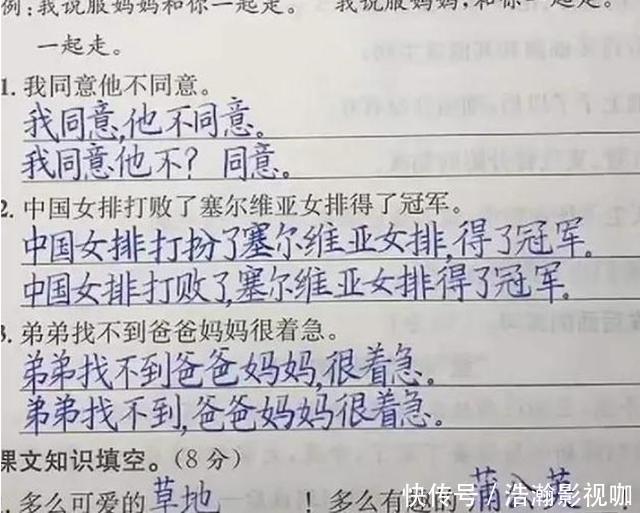 例:我说服妈妈和你一起走。 我说服妈妈,和你一起走。
一起走。
1. 我同意他不同意。
我同意,他不同意。
我同意他不? 同意。
2. 中国女排打败了塞尔维亚女排得了冠军。
中国女排打扮了塞尔维亚女排,得了冠军。
中国女排打败了,塞尔维亚女排得了冠军。
3. 弟弟找不到爸爸妈妈很着急。
弟弟找不到爸爸妈妈,很着急。
弟弟找不到,爸爸妈妈很着急。
课文知识填空。(8分)
多么可爱的草地 ! 多么有
快传号/浩瀚影视咖